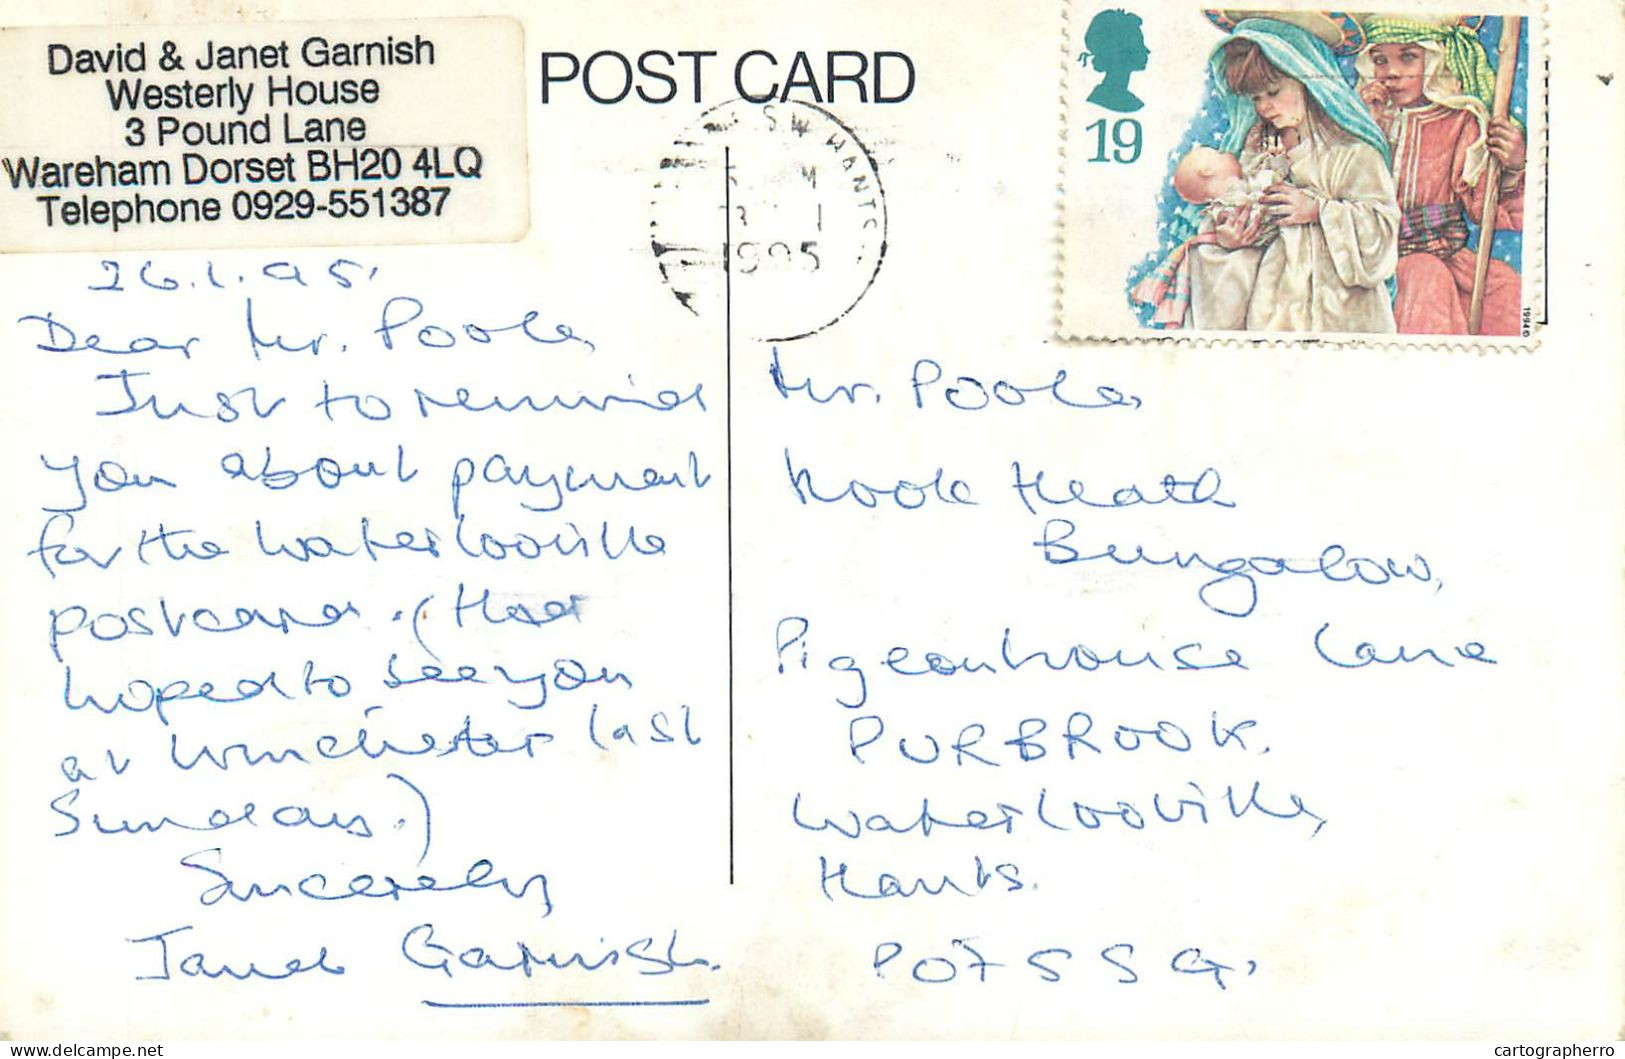 David & Janet Garnish
Westerly House
3 Pound Lane
Wareham Dorset BH20 4LQ
Telephone 0929-551387
POST CARD
S.W. HANTS
1995
19
1994©
26.1.95.
Dear Mr. Poole,
Just to remind
you about payment
for the Waterlooville
postcard. (Had
hoped to see you
at Winchester last
Sunday.)
Sincerely,
Janet Garnish.
Mr. Poole,
Heath
Bungalow,
Pigeonhouse Lane
PURBROOK.
Waterlooville,
Hants.
PO7 5SG.
delcampe.net
cartographerro